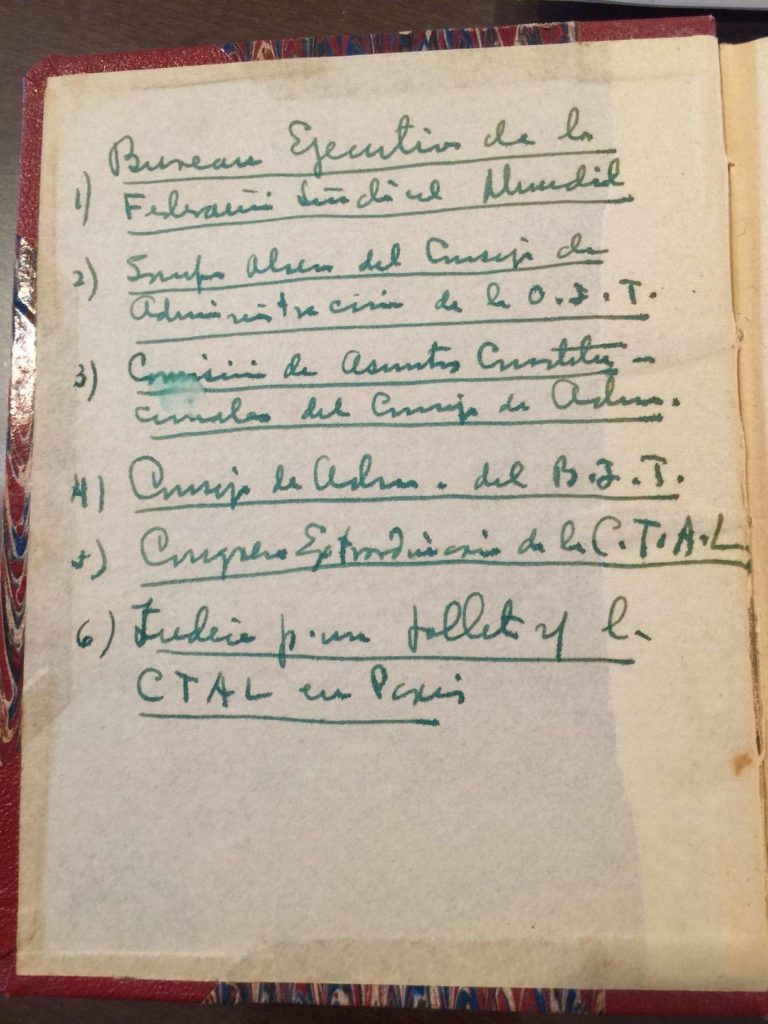 1) Bureau Ejecutivo de la
Federación Sindical Mundial
2) Grupo Obrero del Consejo de
Administración de la O.I.T.
3) Comisión de Asuntos Constitu-
cionales del Consejo de Adm.
4) Consejo de Adm. del B.I.T.
5) Congreso Extraordinario de la C.T.A.L.
6) Indice p. un folleto y la
CTAL en Paris